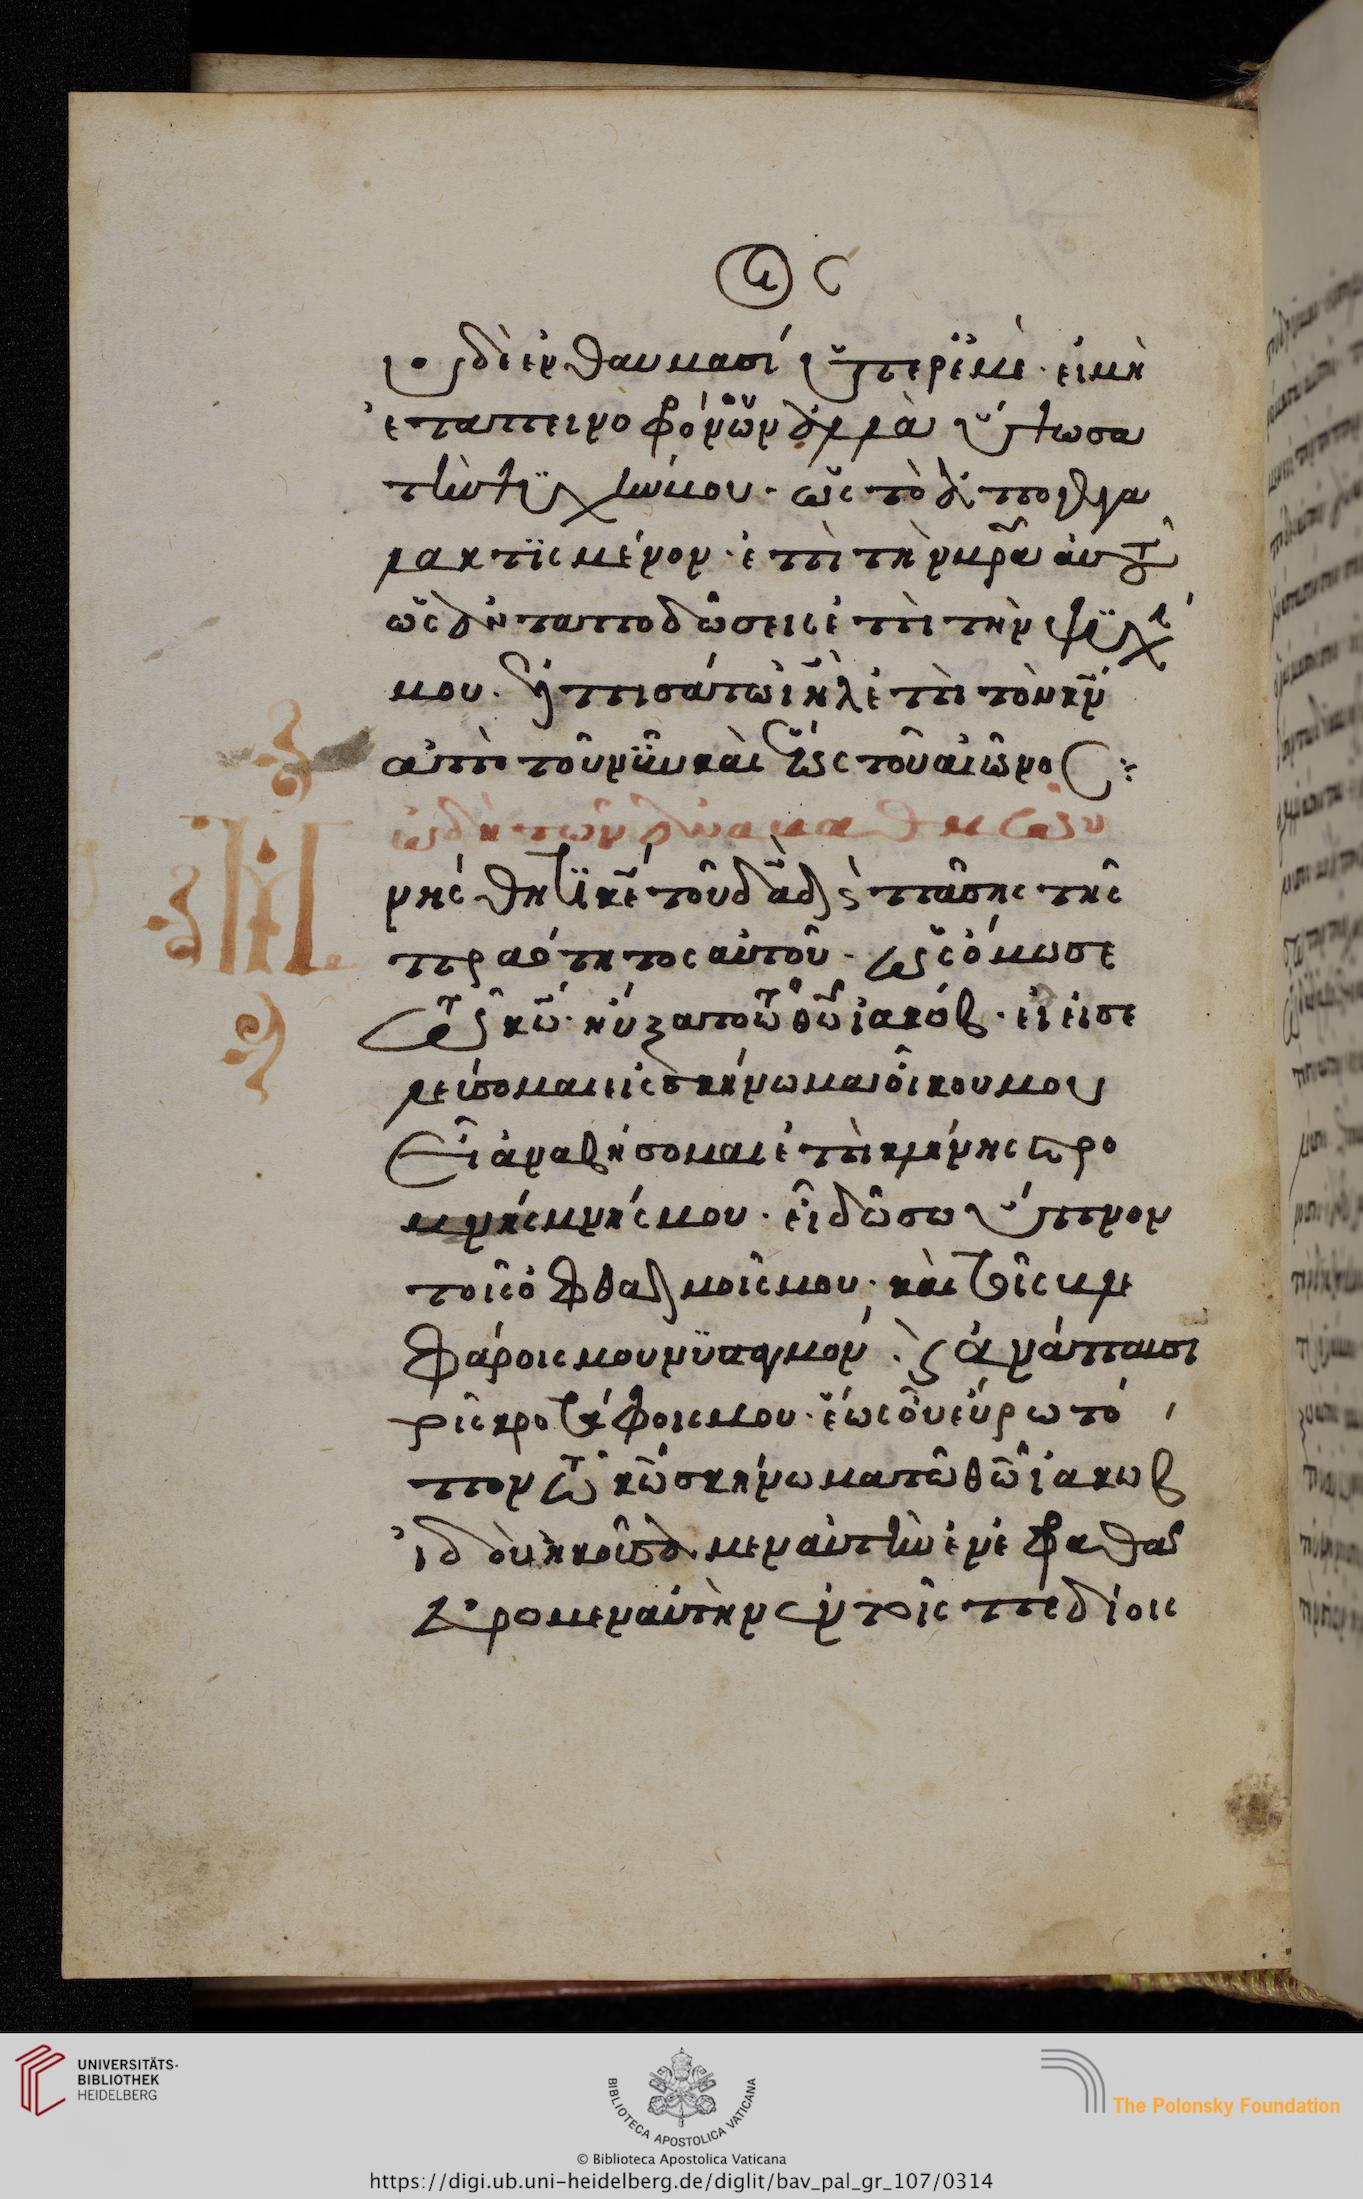 οὐδὲ ἐν θαυμασί ὑπερ ἐμὲ· εἰ μὴ
ἐταπεινοφρόνουν ἀλλὰ ὕψωσα
τὴν ψυχήν μου· ὡς τὸ ἀπογεγα
λακτϊσμένον· ἐπὶ τὴν μρα αὐτοῦ
ὡς ἀνταποδώσεις ἐπὶ τὴν ψυχή
μου. ἐλπισάτω ιηλ ἐπὶ τὸν κν
ἀπὸ τοῦ νῦν καὶ ἕως τοῦ αἰῶνος:
ὠδὴ τῶν ἀναβαθμῶν
Μνήσθητϊ κε τοῦ δαδ καὶ πάσης τῆς
πραότητος αὐτοῦ· ὡς ὄμοσε
τῶ κω· ηὔξατο τῶ θω ἰακώβ· εἰ εἰσε
λεύσομαι εἰς σκήνωμα οἴκου μου
εἰ ἀναβήσομαι ἐπὶ κλήνης στρο
μνής μνής μου· εἰ δώσω ὕπνον
τοῖς ὀφθαλμοῖς μου· καὶ τοῖς βλε
φάροις μου νυσταγμόν· καὶ ἀνάπαυσι
τοῖς κροτάφοις μου· ἕως οὗ εὕρω τό
πον τῶ κω σκήνωμα τῶ θω ἰακωβ
ἰδοὺ ἠκούσαμεν αὐτὴν ἐν ἐφραθα
εὕρομεν αὐτὴν ἐν τοῖς πεδίοις
UNIVERSITÄTS-
BIBLIOTHEK
HEIDELBERG
BIBLIOTECA APOSTOLICA VATICANA
© Biblioteca Apostolica Vaticana
The Polonsky Foundation
https://digi.ub.uni-heidelberg.de/diglit/bav_pal_gr_107/0314